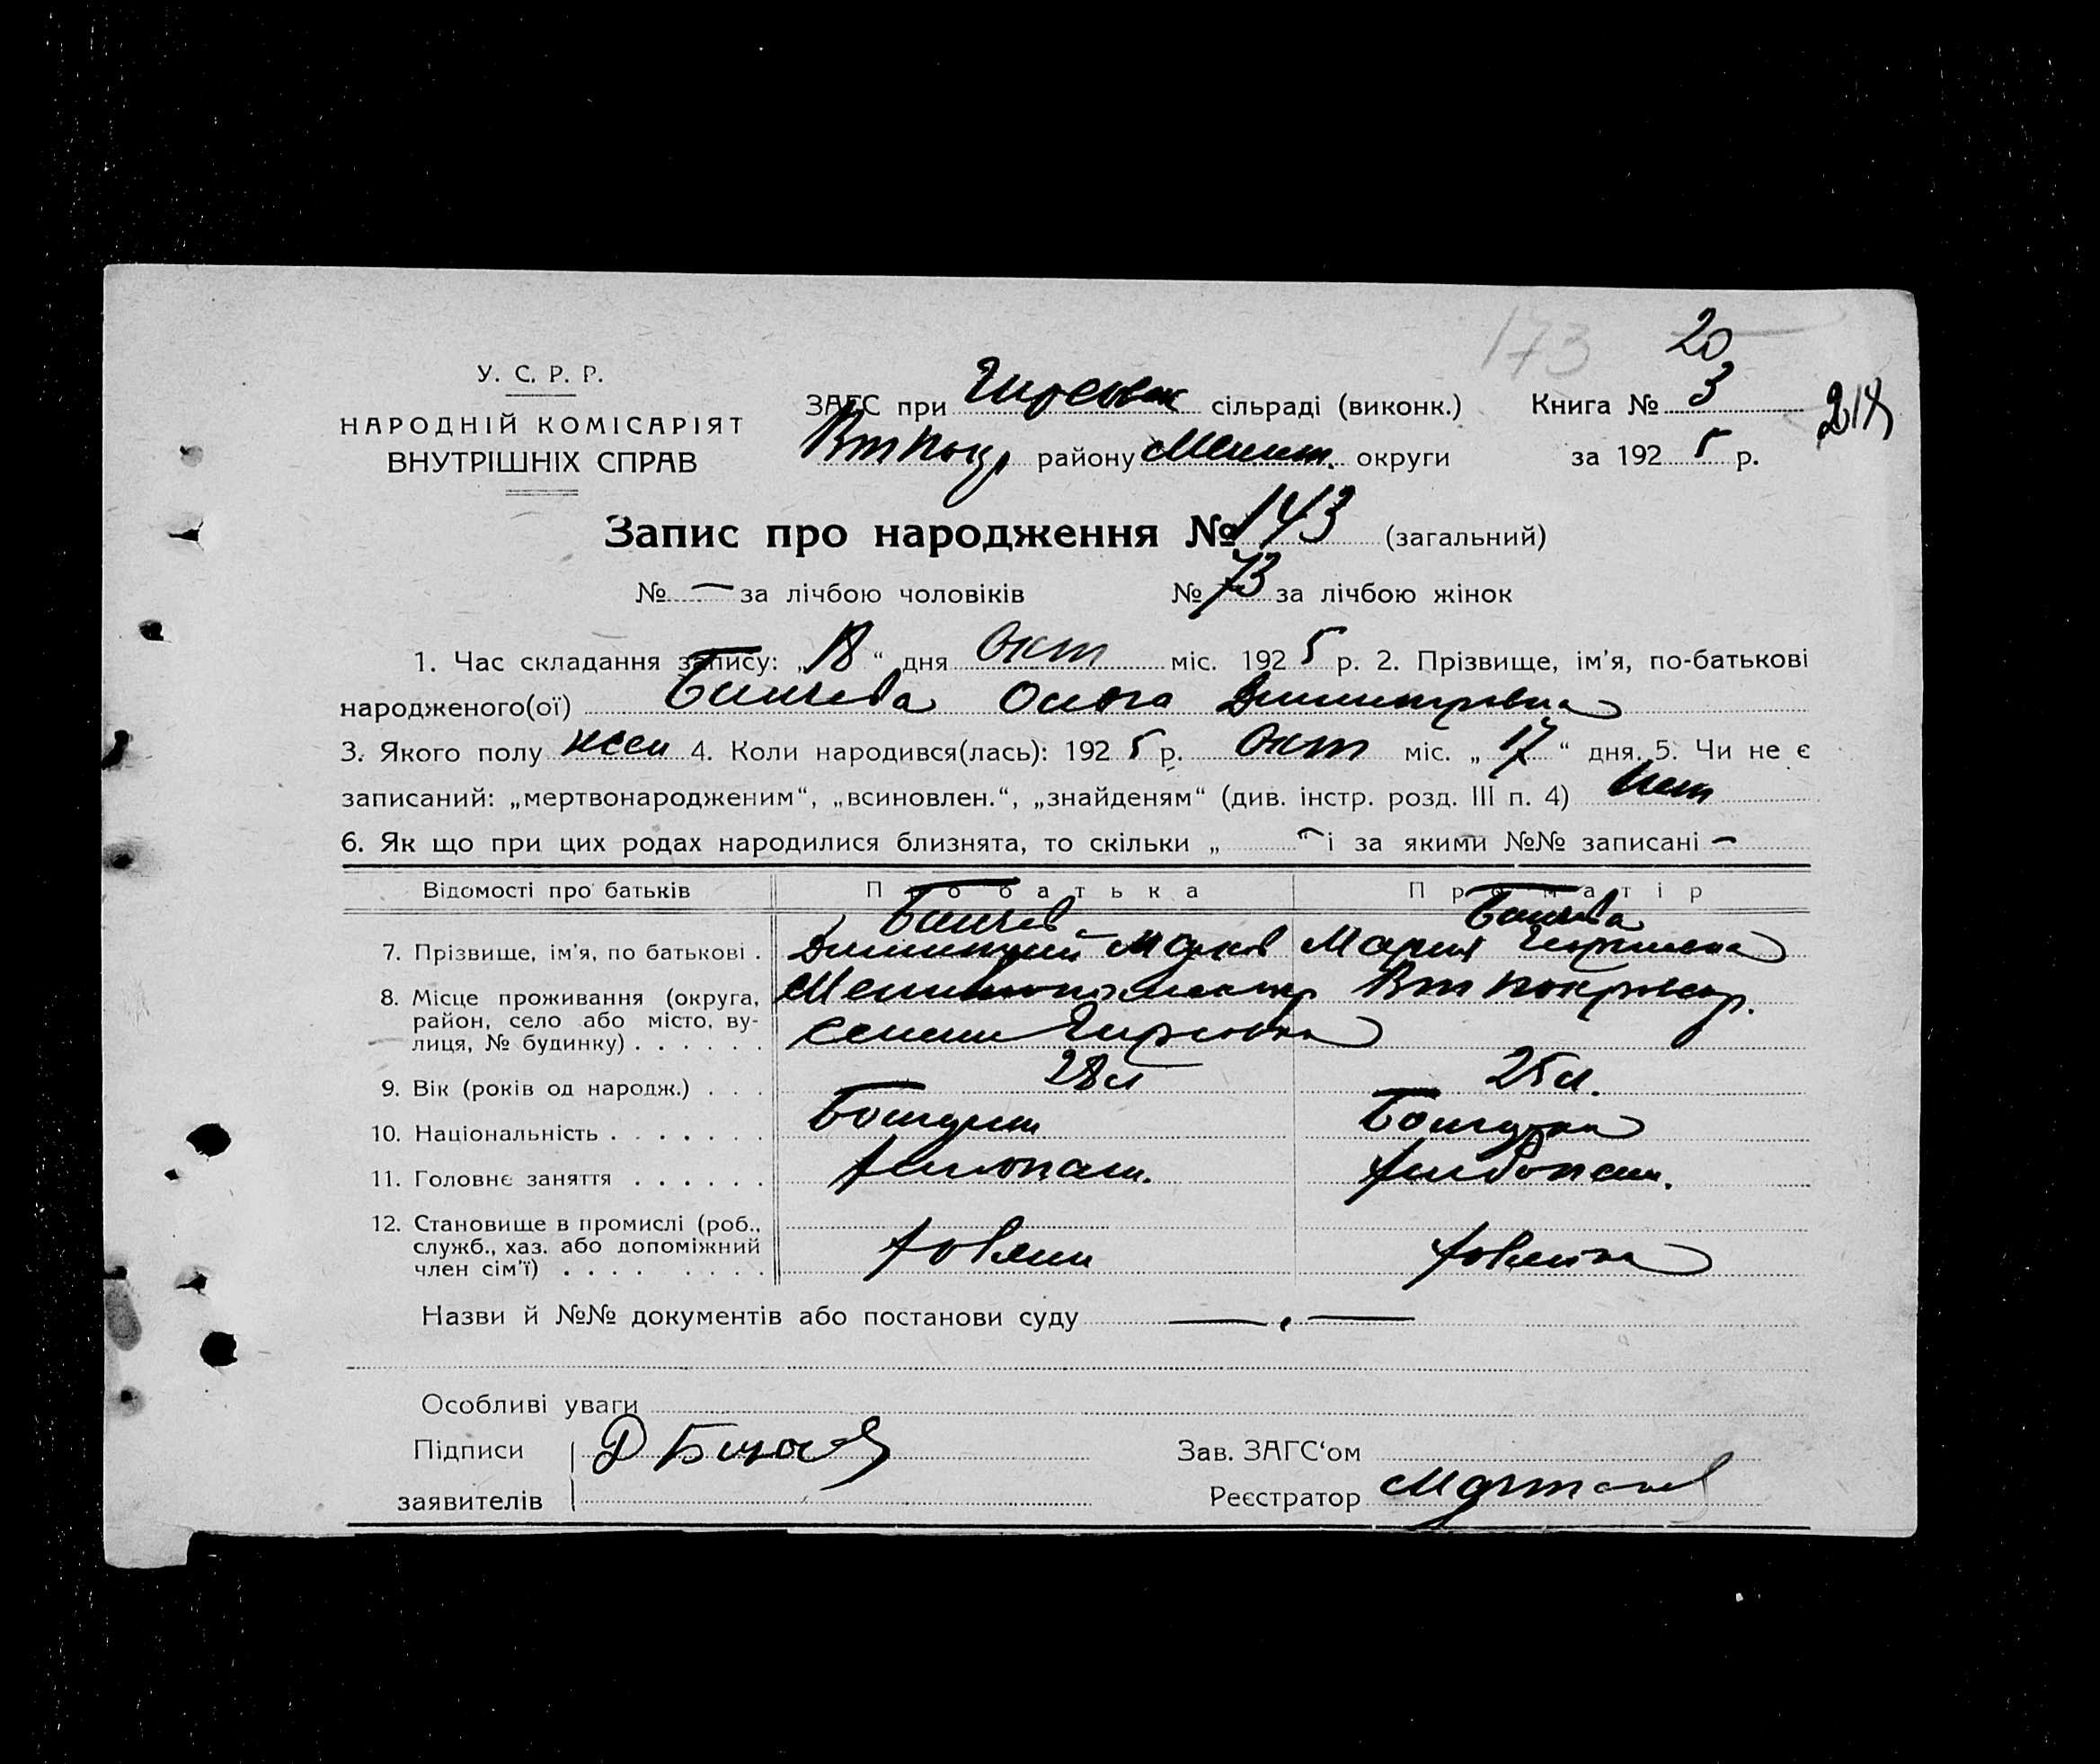 173 20
У. С. Р. Р.
НАРОДНІЙ КОМІСАРІЯТ
ВНУТРІШНІХ СПРАВ
ЗАГС при Гирсовск сільраді (виконк.) Книга № 3 218
району Мелит. округи за 192 5 р.
Запис про народження № 143 (загальний)
№ — за лічбою чоловіків № 73 за лічбою жінок
1. Час складання запису: „18“ дня Окт міс. 192 5 р. 2. Прізвище, ім'я, по-батькові
народженого(ої) Ольга Димитровна
3. Якого полу жен 4. Коли народився(лась): 192 5 р. Окт міс. „17“ дня. 5. Чи не є
записаний: „мертвонародженим“, „всиновлен.“, „знайденям“ (див. інстр. розд. III п. 4) Нет
6. Як що при цих родах народилися близнята, то скільки „ — “ і за якими №№ записані —
Відомості про батьків Про батька Про матір
7. Прізвище, ім'я, по батькові . Димитрий Марков Мария
8. Місце проживання (округа, Вт Покровскр.
район, село або місто, ву-
лиця, № будинку) . . . . . . селении Гирсовка
9. Вік (років од народж.) . . . 28 л 25 л.
10. Національність . . . . . . . Болгарин Болгарка
11. Головнє заняття . . . . . . хлебопаш. хлебопаш.
12. Становище в промислі (роб.,
служб., хаз. або допоміжний
член сім'ї) . . . . . . . . хозяин хозяйка
Назви й №№ документів або постанови суду — „ —
Особливі уваги
Підписи Д
Зав. ЗАГС‘ом
заявителів
Реєстратор